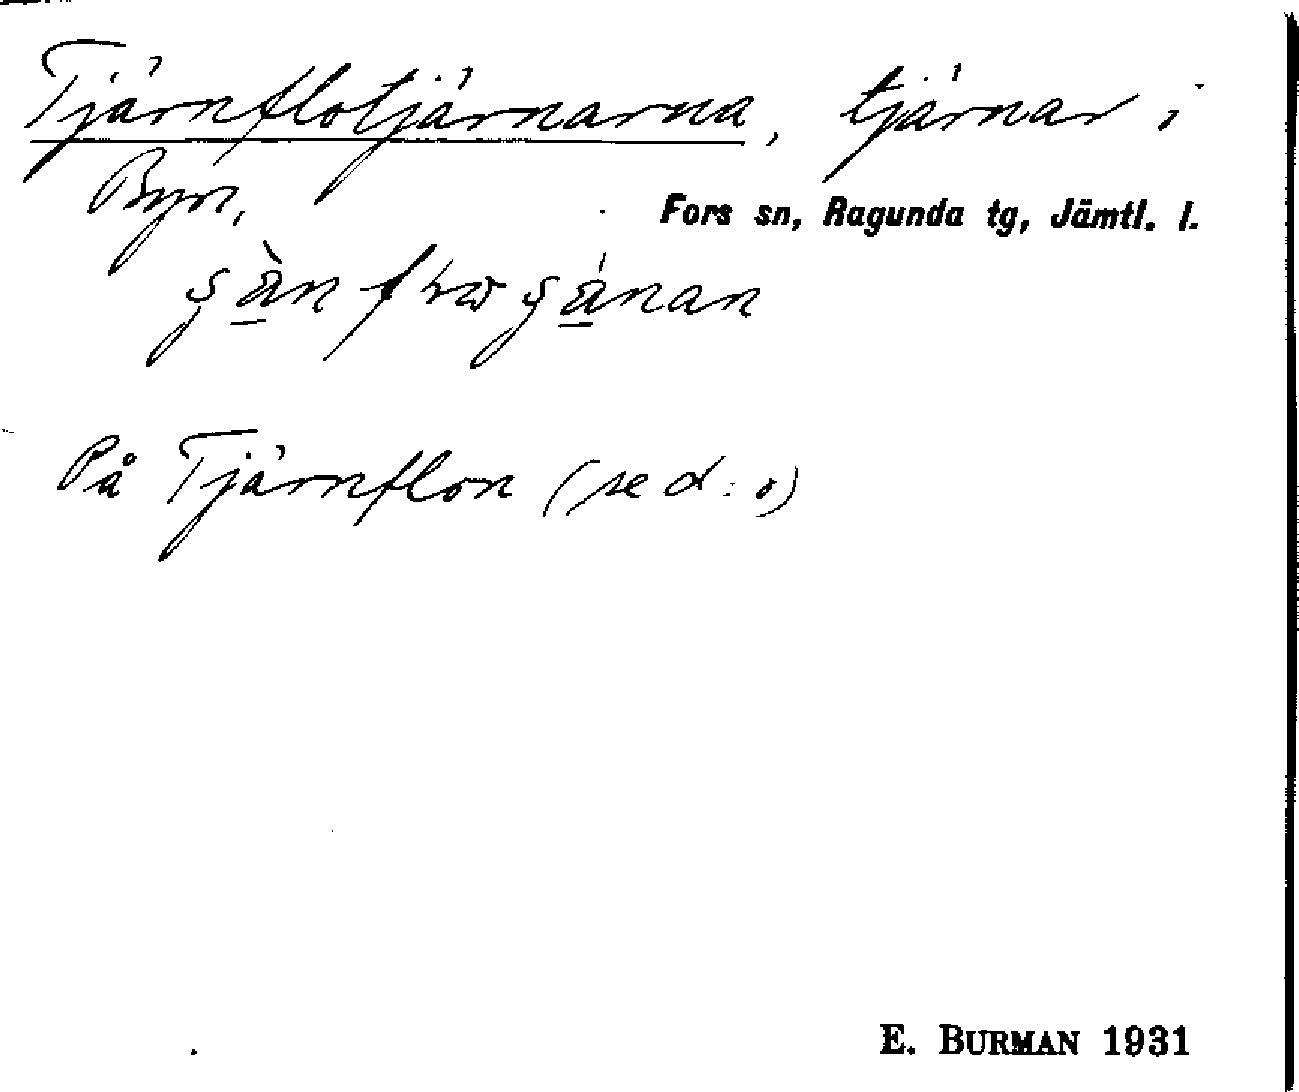 Tjärnflotjärnarna, tjärnar i
Byn,
Fors sn, Ragunda tg, Jämtl. l.
På Tjärnflon (se d. o)
E. BURMAN 1931